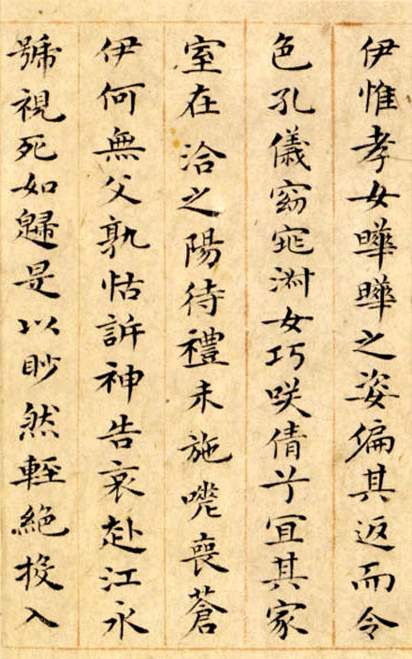 伊惟孝女曄曄之姿偏其返而令
色孔儀窈窕淑女巧咲倩兮冝其家
室在洽之陽待禮未施嗟喪蒼
伊何無父孰怙訴神告哀赴江永
號視死如歸是以眇然輕絕投入